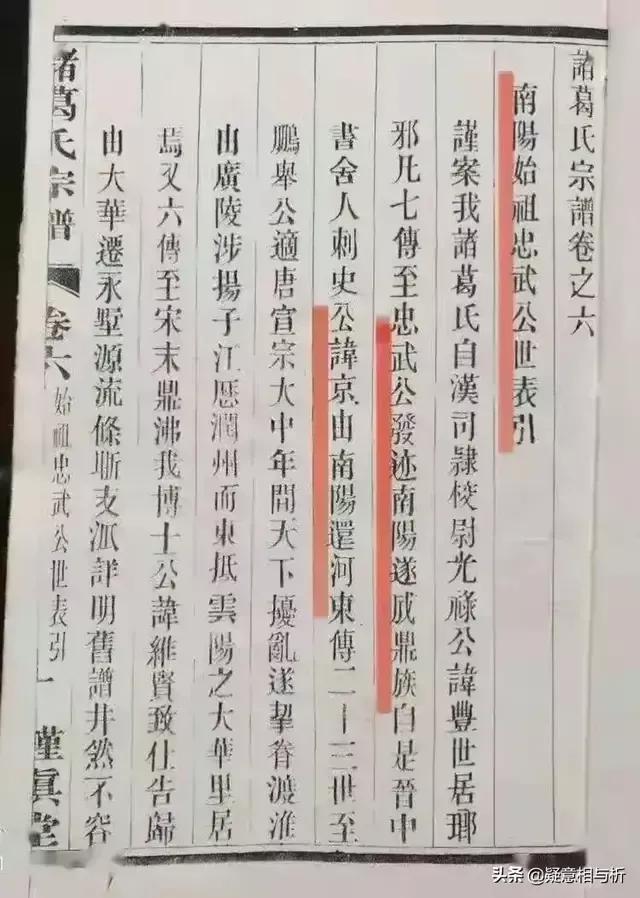 諸葛氏宗譜卷之六
南陽始祖忠武公世表引
謹案我諸葛氏自漢司隸校尉光祿公諱豐世居瑯
邪凡七傳至忠武公發迹南陽遂成鼎族自是晉中
書舍人刺史公諱京由南陽遷河東傳二十三世至
鵬舉公適唐宣宗大中年間天下擾亂遂挈眷渡淮
由廣陵涉揚子江歷潤州而東抵雲陽之大華里居
焉又六傳至宋末鼎沸我博士公諱維賢致仕告歸
由大華遷永墅源流條晰支派詳明舊譜井然不容
諸葛氏宗譜 卷六 始祖忠武公世表引 一 瑾眞堂
头条 @疑意相与析